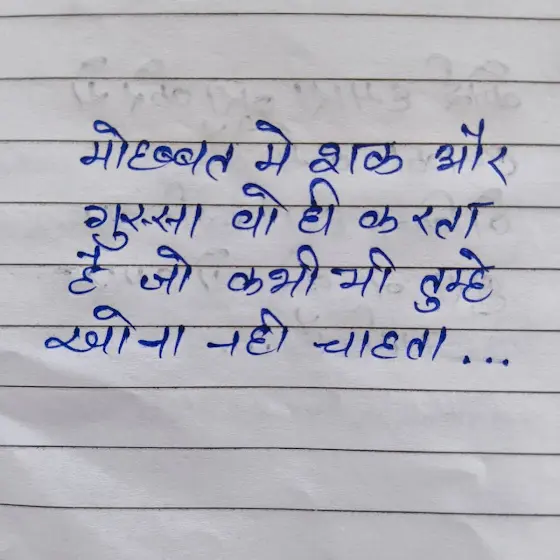 मोहब्बत मे शक और
गुस्सा वो ही करता
है जो कभी भी तुम्हे
खोना नही चाहता...